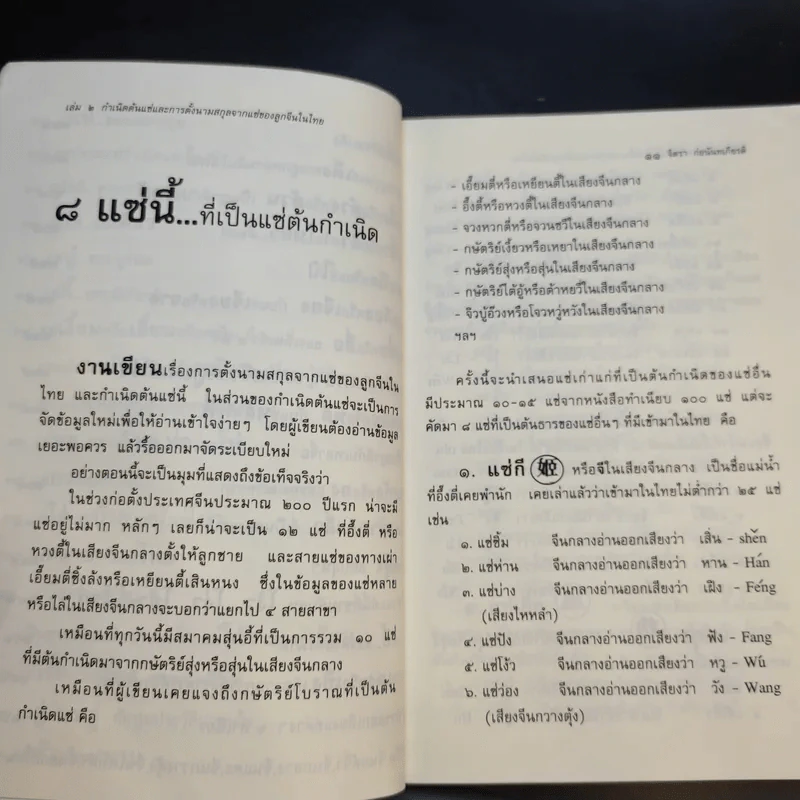 เล่ม ๒ กำเนิดต้นแซ่และการตั้งนามสกุลจากแซ่ของลูกจีนในไทย
๘ แซ่นี้...ที่เป็นแซ่ต้นกำเนิด
งานเขียนเรื่องการตั้งนามสกุลจากแซ่ของลูกจีนใน
ไทย และกำเนิดต้นแซ่นี้ ในส่วนของกำเนิดต้นแซ่จะเป็นการ
จัดข้อมูลใหม่เพื่อให้อ่านเข้าใจง่ายๆ โดยผู้เขียนต้องอ่านข้อมูล
เยอะพอควร แล้วรื้อออกมาจัดระเบียบใหม่
อย่างตอนนี้จะเป็นมุมที่แสดงถึงข้อเท็จจริงว่า
ในช่วงก่อตั้งประเทศจีนประมาณ ๒๐๐ ปีแรก น่าจะมี
แซ่อยู่ไม่มาก หลักๆ เลยก็น่าจะเป็น ๑๒ แซ่ ที่อึ้งตี่ หรือ
หวงตี้ในเสียงจีนกลางตั้งให้ลูกชาย และสายแซ่ของทางเผ่า
เอี้ยมตี่ซิ้งล้งหรือเหยียนตี้เสินหนง ซึ่งในข้อมูลของแซ่หลาย
หรือไล่ในเสียงจีนกลางจะบอกว่าแยกไป ๔ สายสาขา
เหมือนที่ทุกวันนี้มีสมาคมสุ่นอี้ที่เป็นการรวม ๑๐ แซ่
ที่มีต้นกำเนิดมาจากกษัตริย์สุ่งหรือสุ่นในเสียงจีนกลาง
เหมือนที่ผู้เขียนเคยแจงถึงกษัตริย์โบราณที่เป็นต้น
กำเนิดแซ่ คือ
๑๑ จิตรา ก่อนันทเกียรติ
- เอี้ยมตี่หรือเหยียนตี้ในเสียงจีนกลาง
- อึ้งตี่หรือหวงตี้ในเสียงจีนกลาง
- จวงหวกตี่หรือจวนซวี่ในเสียงจีนกลาง
- กษัตริย์เงี้ยวหรือเหยาในเสียงจีนกลาง
- กษัตริย์สุ่งหรือสุ่นในเสียงจีนกลาง
- กษัตริย์ไต้อู้หรือต้าหยวี่ในเสียงจีนกลาง
- จิวบู้อ๊วงหรือโจวหวู่หวังในเสียงจีนกลาง
ฯลฯ
ครั้งนี้จะนำเสนอแซ่เก่าแก่ที่เป็นต้นกำเนิดของแซ่อื่น
มีประมาณ ๑๐-๑๕ แซ่จากหนังสือทำเนียบ ๑๐๐ แซ่ แต่จะ
คัดมา ๘ แซ่ที่เป็นต้นธารของแซ่อื่นๆ ที่มีเข้ามาในไทย คือ
๑. แซ่กี 姬 หรือจีในเสียงจีนกลาง เป็นชื่อแม่น้ำ
ที่อึ้งตี่เคยพำนัก เคยเล่าแล้วว่าเข้ามาในไทยไม่ต่ำกว่า ๒๕ แซ่
เช่น
๑. แซ่ซิ้ม จีนกลางอ่านออกเสียงว่า เสิ่น - shěn
๒. แซ่ห่าน จีนกลางอ่านออกเสียงว่า หาน - Hán
๓. แซ่บ่าง จีนกลางอ่านออกเสียงว่า เฝิง - Féng
(เสียงไหหลำ)
๔. แซ่ปัง จีนกลางอ่านออกเสียงว่า ฟัง - Fang
๕. แซ่โง้ว จีนกลางอ่านออกเสียงว่า หวู - Wú
๖. แซ่ว่อง จีนกลางอ่านออกเสียงว่า วัง - Wang
(เสียงจีนกวางตุ้ง)